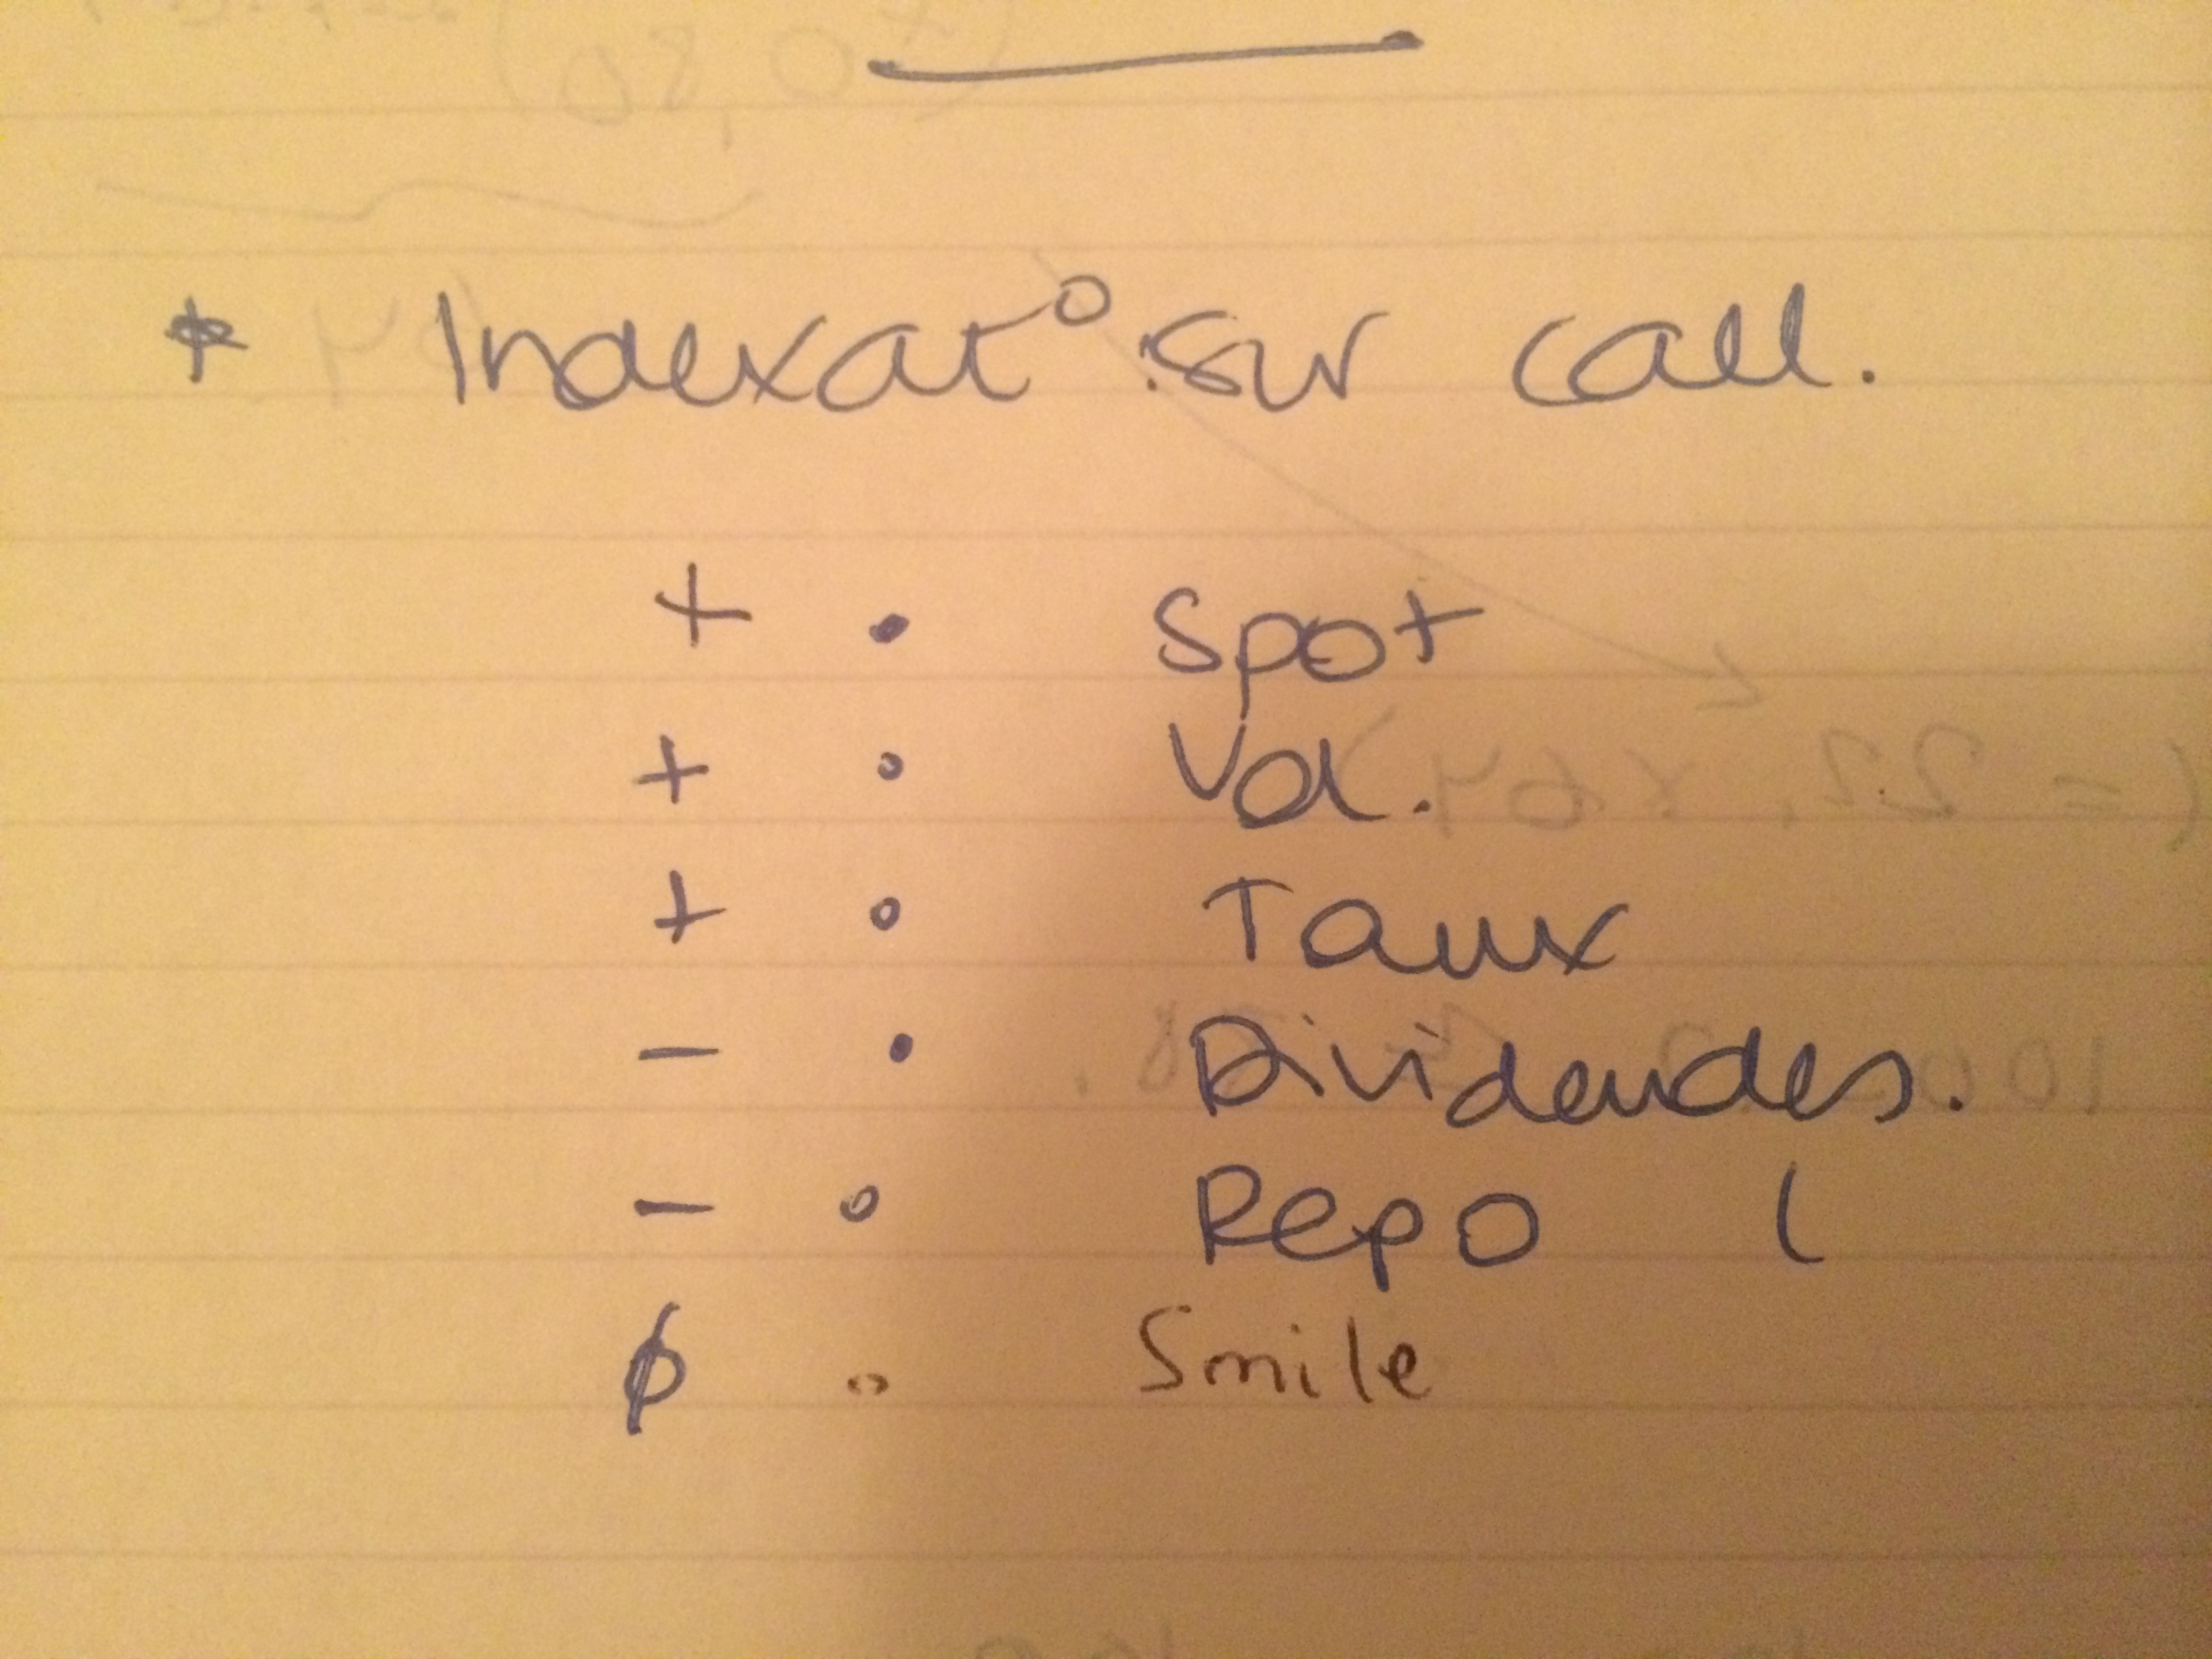 * Indexat° sur Call.
+ • Spot
+ ° Vol.
+ ° Taux
- • Dividendes.
- ° Repo (
ø ° Smile